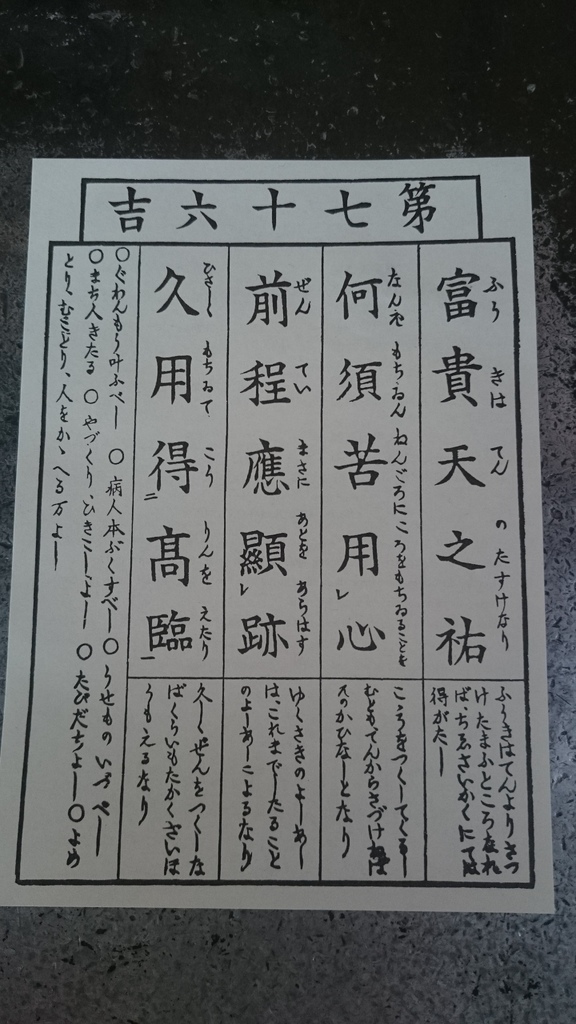 第七十六吉
富貴天之祐
ふうきはてんのたすけなり
ふうきはてんよりさつ
けたまふところなれ
ば、ちゑさいかくにては
得がたし
何須苦用レ心
なんぞもちゐんねんごろにこゝろをもちゐることを
こゝろをつくしてくるし
むともてんからさづけねば
そのかひなしとなり
前程應顯レ跡
ぜんていまさにあとをあらはす
ゆくさきのよしあし
は、これまでしたること
のよしあしによるなり
久用得二高臨一
ひさしくもちゐてこうりんをえたり
久しくぜんをつくしな
ばくらいもたかくさいは
うもえるなり
○ぐわんもう叶ふべし ○病人本ぶくすべし○うせものいづべし
○まち人きたる ○やづくり、ひきこしよし ○たびだちよし○よめ
とり、むことり、人をかゝへる万よし